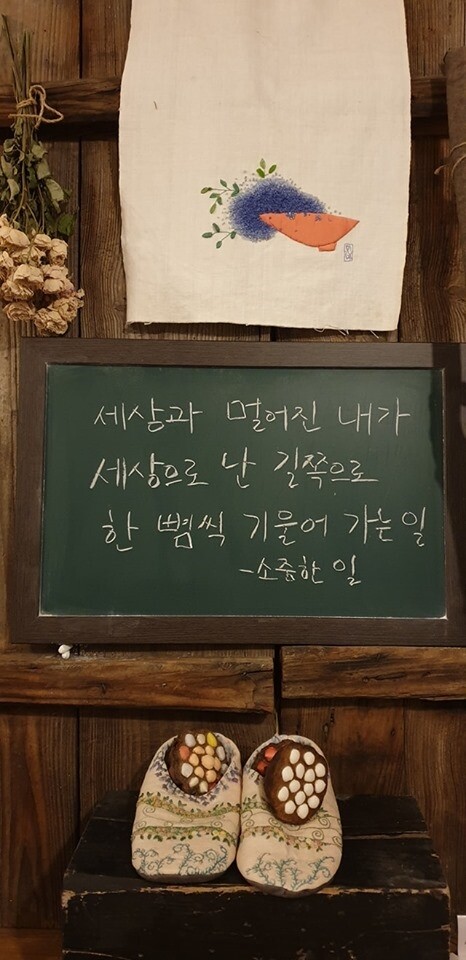 세상과 멀어진 내가
세상으로 난 길쪽으로
한 뼘씩 기울어 가는 일
-소중한 일